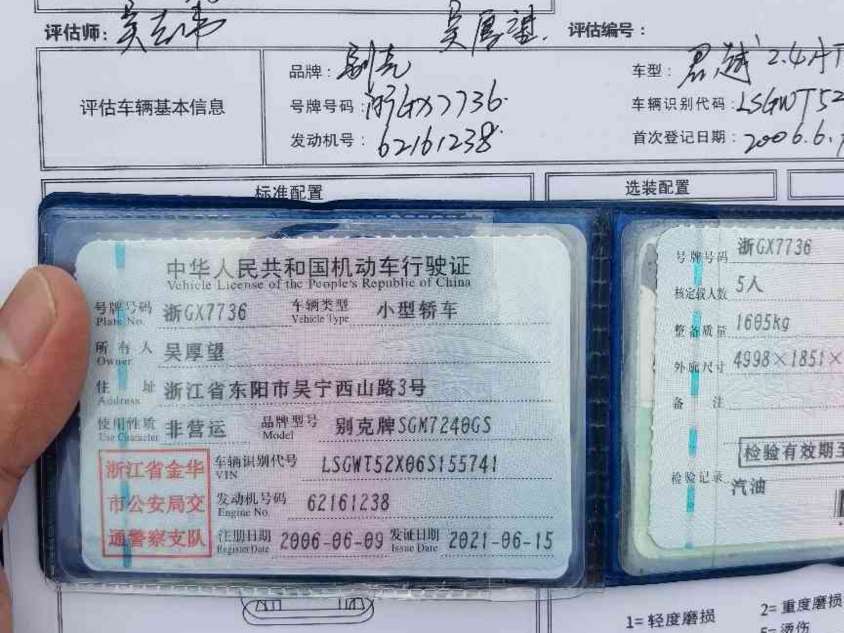 评估师： 吴志伟 吴厚望 评估编号：
评估车辆基本信息
品牌：别克 车型：君越 2.4
号牌号码：浙GX7736 车辆识别代码：LSGWT52
发动机号：62161238 首次登记日期：2006.6.
标准配置 选装配置
中华人民共和国机动车行驶证
Vehicle License of the People's Republic of China
号牌号码 浙GX7736 车辆类型 小型轿车
Plate No. Vehicle Type
所有人 吴厚望
Owner
住址 浙江省东阳市吴宁西山路3号
Address
使用性质 非营运 品牌型号 别克牌SGM7240GS
Use Character Model
浙江省金华
市公安局交
通警察支队
车辆识别代号 LSGWT52X06S155741
VIN
发动机号码 62161238
Engine No.
注册日期 2006-06-09 发证日期 2021-06-15
Register Date Issue Date
号牌号码 浙GX7736
核定载人数 5人
整备质量 1605kg
外廓尺寸 4998×1851×
备注
检验有效期至
检验记录
汽油
1=轻度磨损 2=重度磨损
5=烫伤